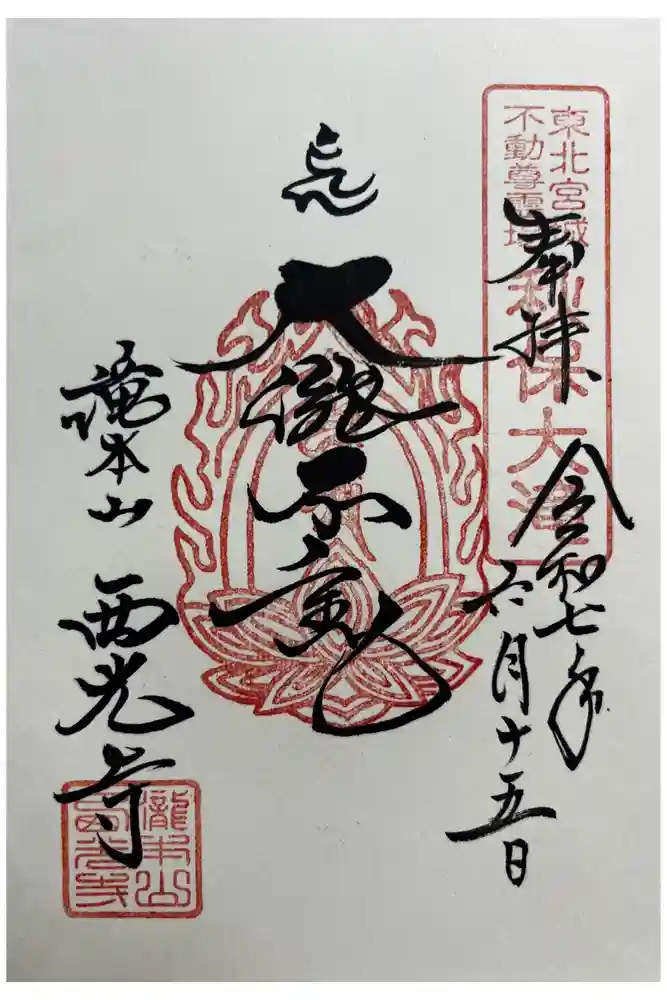 東北宮城
不動尊霊場
秋保大滝
奉拝
令和七年
六月十五日
大瀧不動
滝本山
西光寺
瀧本山
西光寺